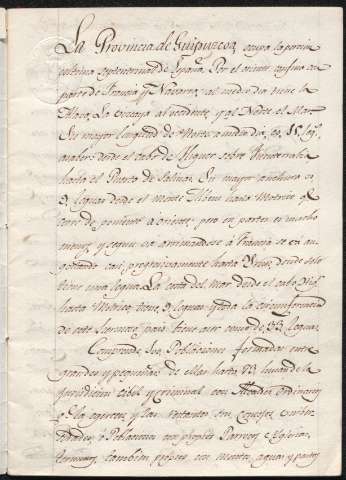 La Provincia de Guipuzcoa, ocupa la parte
septentrional de España. Por el oriente confina con
parte de Francia y Navarra; al medio dia tiene la
Alava, la Vizcaya al occidente, y al Norte el Mar.
Su mayor longitud de Norte a medio dia, es 15 leg.
desde el cabo de Higuer sobre Fuenterrabia
hasta el Puerto de Salinas. Su mayor anchura es
9 leguas desde el monte hasta Motrico q.
corre de poniente a oriente; pero en partes es mucho
menor, y segun va arrimandose à Francia se va an-
gostando casi hasta Yrun, donde solo
tiene una legua. La costa del Mar desde el cabo Hig.
hasta Motrico, tiene 9 leguas y toda la circunferencia
de este hermoso pais tiene leguas.
Comprende Poblaciones formadas entre
grandes y pequeñas; de ellas hasta 73,
jurisdiccion civil y criminal con Alcaldes Ordinarios
q.e la egercen, y las restantes son
Poblacion con propios Parrocos e Yglesias,
terminos, tambien propios, en montes, aguas y pastos